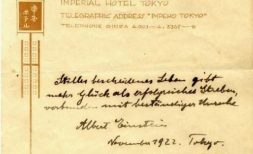 帝国ホテル
IMPERIAL HOTEL TOKYO
TELEGRAPHIC ADDRESS "IMPEHO TOKYO"
Stilles bescheidenes Leben gibt
mehr Glück als erfolgreiches Streben,
verbunden mit beständiger Unruhe.
Albert Einstein
November 1922. Tokyo.